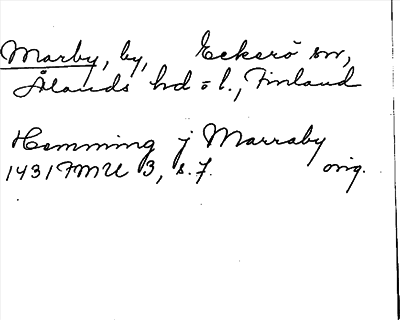 Marby, by, Eckerö sn,
Ålands hd o l., Finland
Hemming j Marraby
1431 FMU 3, s. 7. orig.